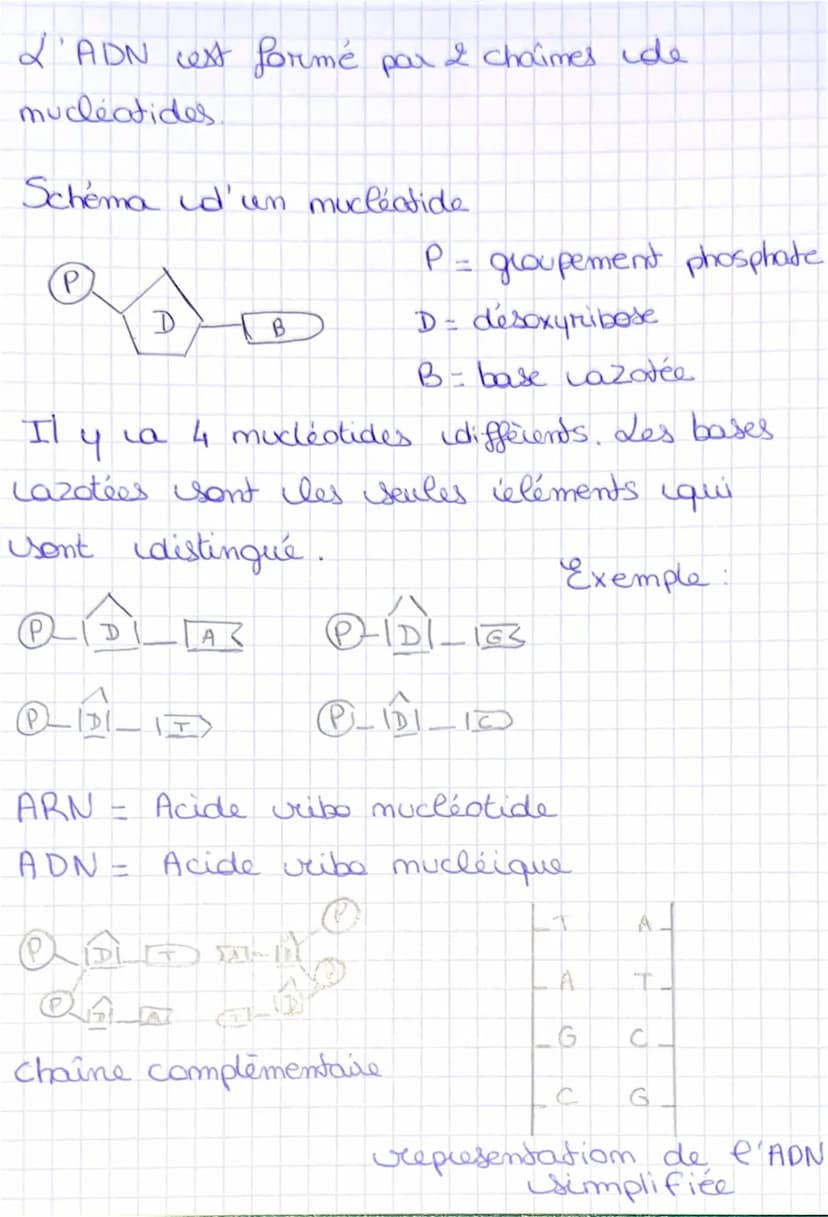 L'ADN est formé par 2 chaînes de
nucléotides.
Schéma d'un nucléotide
P D B
P = groupement phosphate
D = désoxyribose
B = base azotée
Il y a 4 nucléotides différents. Les bases
azotées sont les seules éléments qui
sont distingué.
Exemple :
P D A P D G
P D T P D C
ARN = Acide ribo nucléotide
ADN = Acide ribo nucléique
P D T A D P
P D A T D P
T A
A T
G C
C G
Chaîne complémentaire
representation de l'ADN
simplifiée